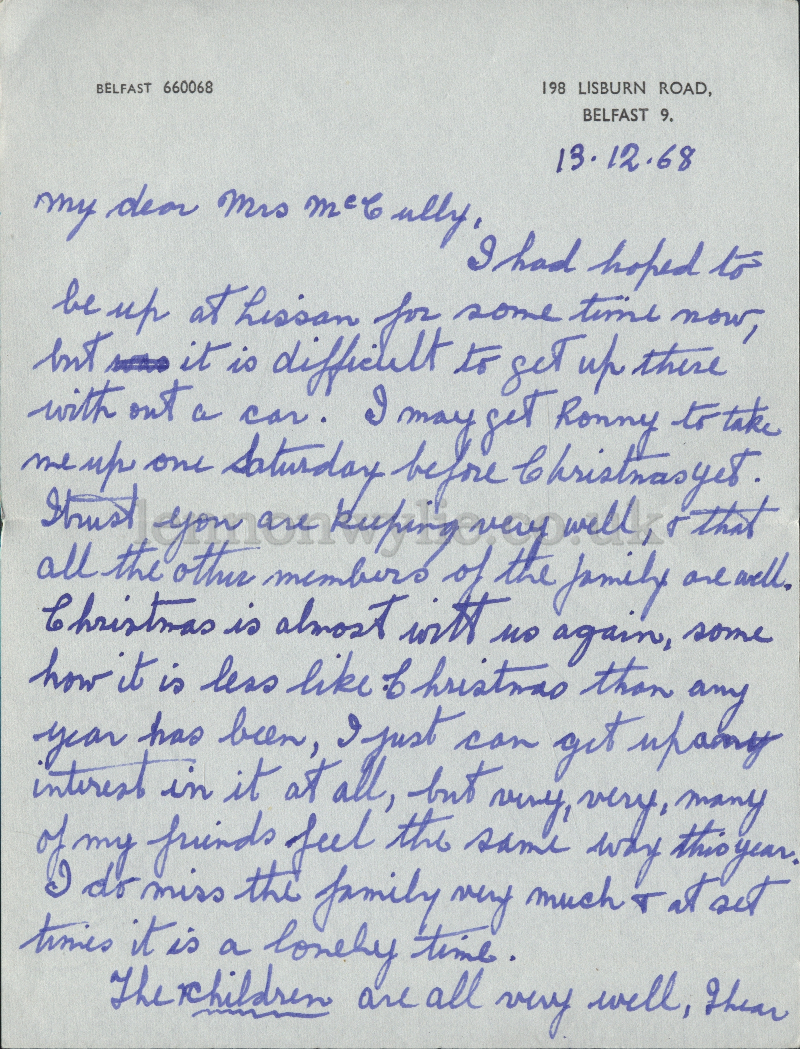 BELFAST 660068
198 LISBURN ROAD,
BELFAST 9.
13.12.68
My dear Mrs McCully,
I had hoped to
be up at Lissan for some time now,
but was it is difficult to get up there
with out a car. I may get Ronny to take
me up one Saturday before Christmas yet.
I trust you are keeping very well, & that
lennonwylie.co.uk
all the other members of the family are well.
Christmas is almost with us again, some
how it is less like Christmas than any
year has been, I just can get up any
interest in it at all, but very, very, many
of my friends feel the same way this year.
I do miss the family very much & at set
times it is a lonely time.
The "children are all very well, I hear